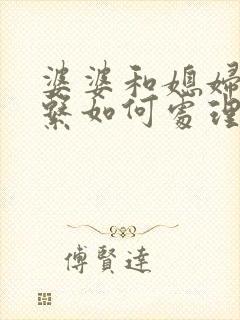 婆婆和媳婦
繫如何處理
傅賢達